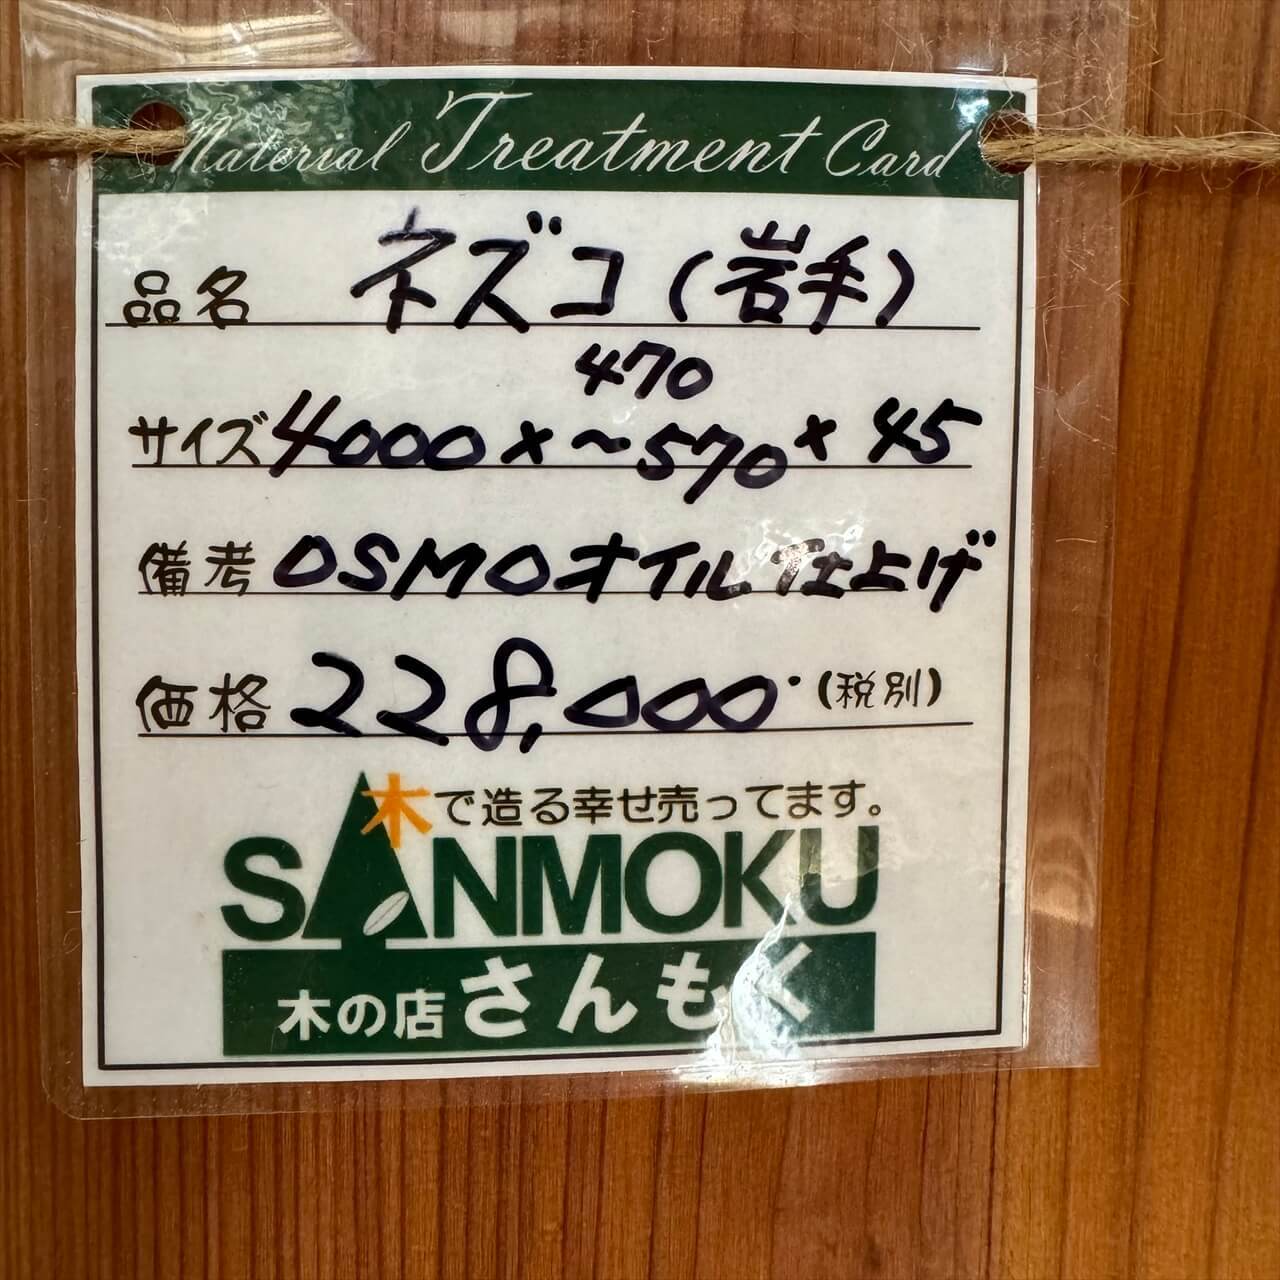 Material Treatment Card
品名 ネズコ(岩手)
470
サイズ 4000×~570×45
備考 OSMOオイル仕上げ
価格 228,000.(税別)
木で造る幸せ売ってます。
SANMOKU
木の店さんもく